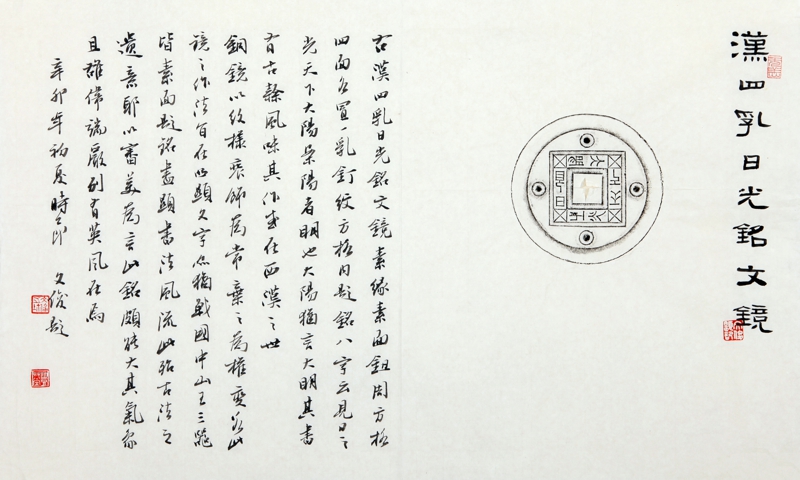 漢四乳日光銘文鏡
右漢四乳日光銘文鏡素緣素面鈕周方格
四面各置一乳釘紋方格內題銘八字云見日之
光天下大陽案陽者明也大陽猶言大明其書
有古隸風味其作或在西漢之世
銅鏡以紋樣裝飾為常棄之為權變若此
鏡之作法旨在以顯文字亦猶戰國中山王三器
皆素面題銘盡顯書法風流此殆古法之
遺意耶以審美為言此銘頗大其氣象
且雄偉端嚴別有英風在焉
辛卯年初夏時 文俊題
見日之光天下大陽